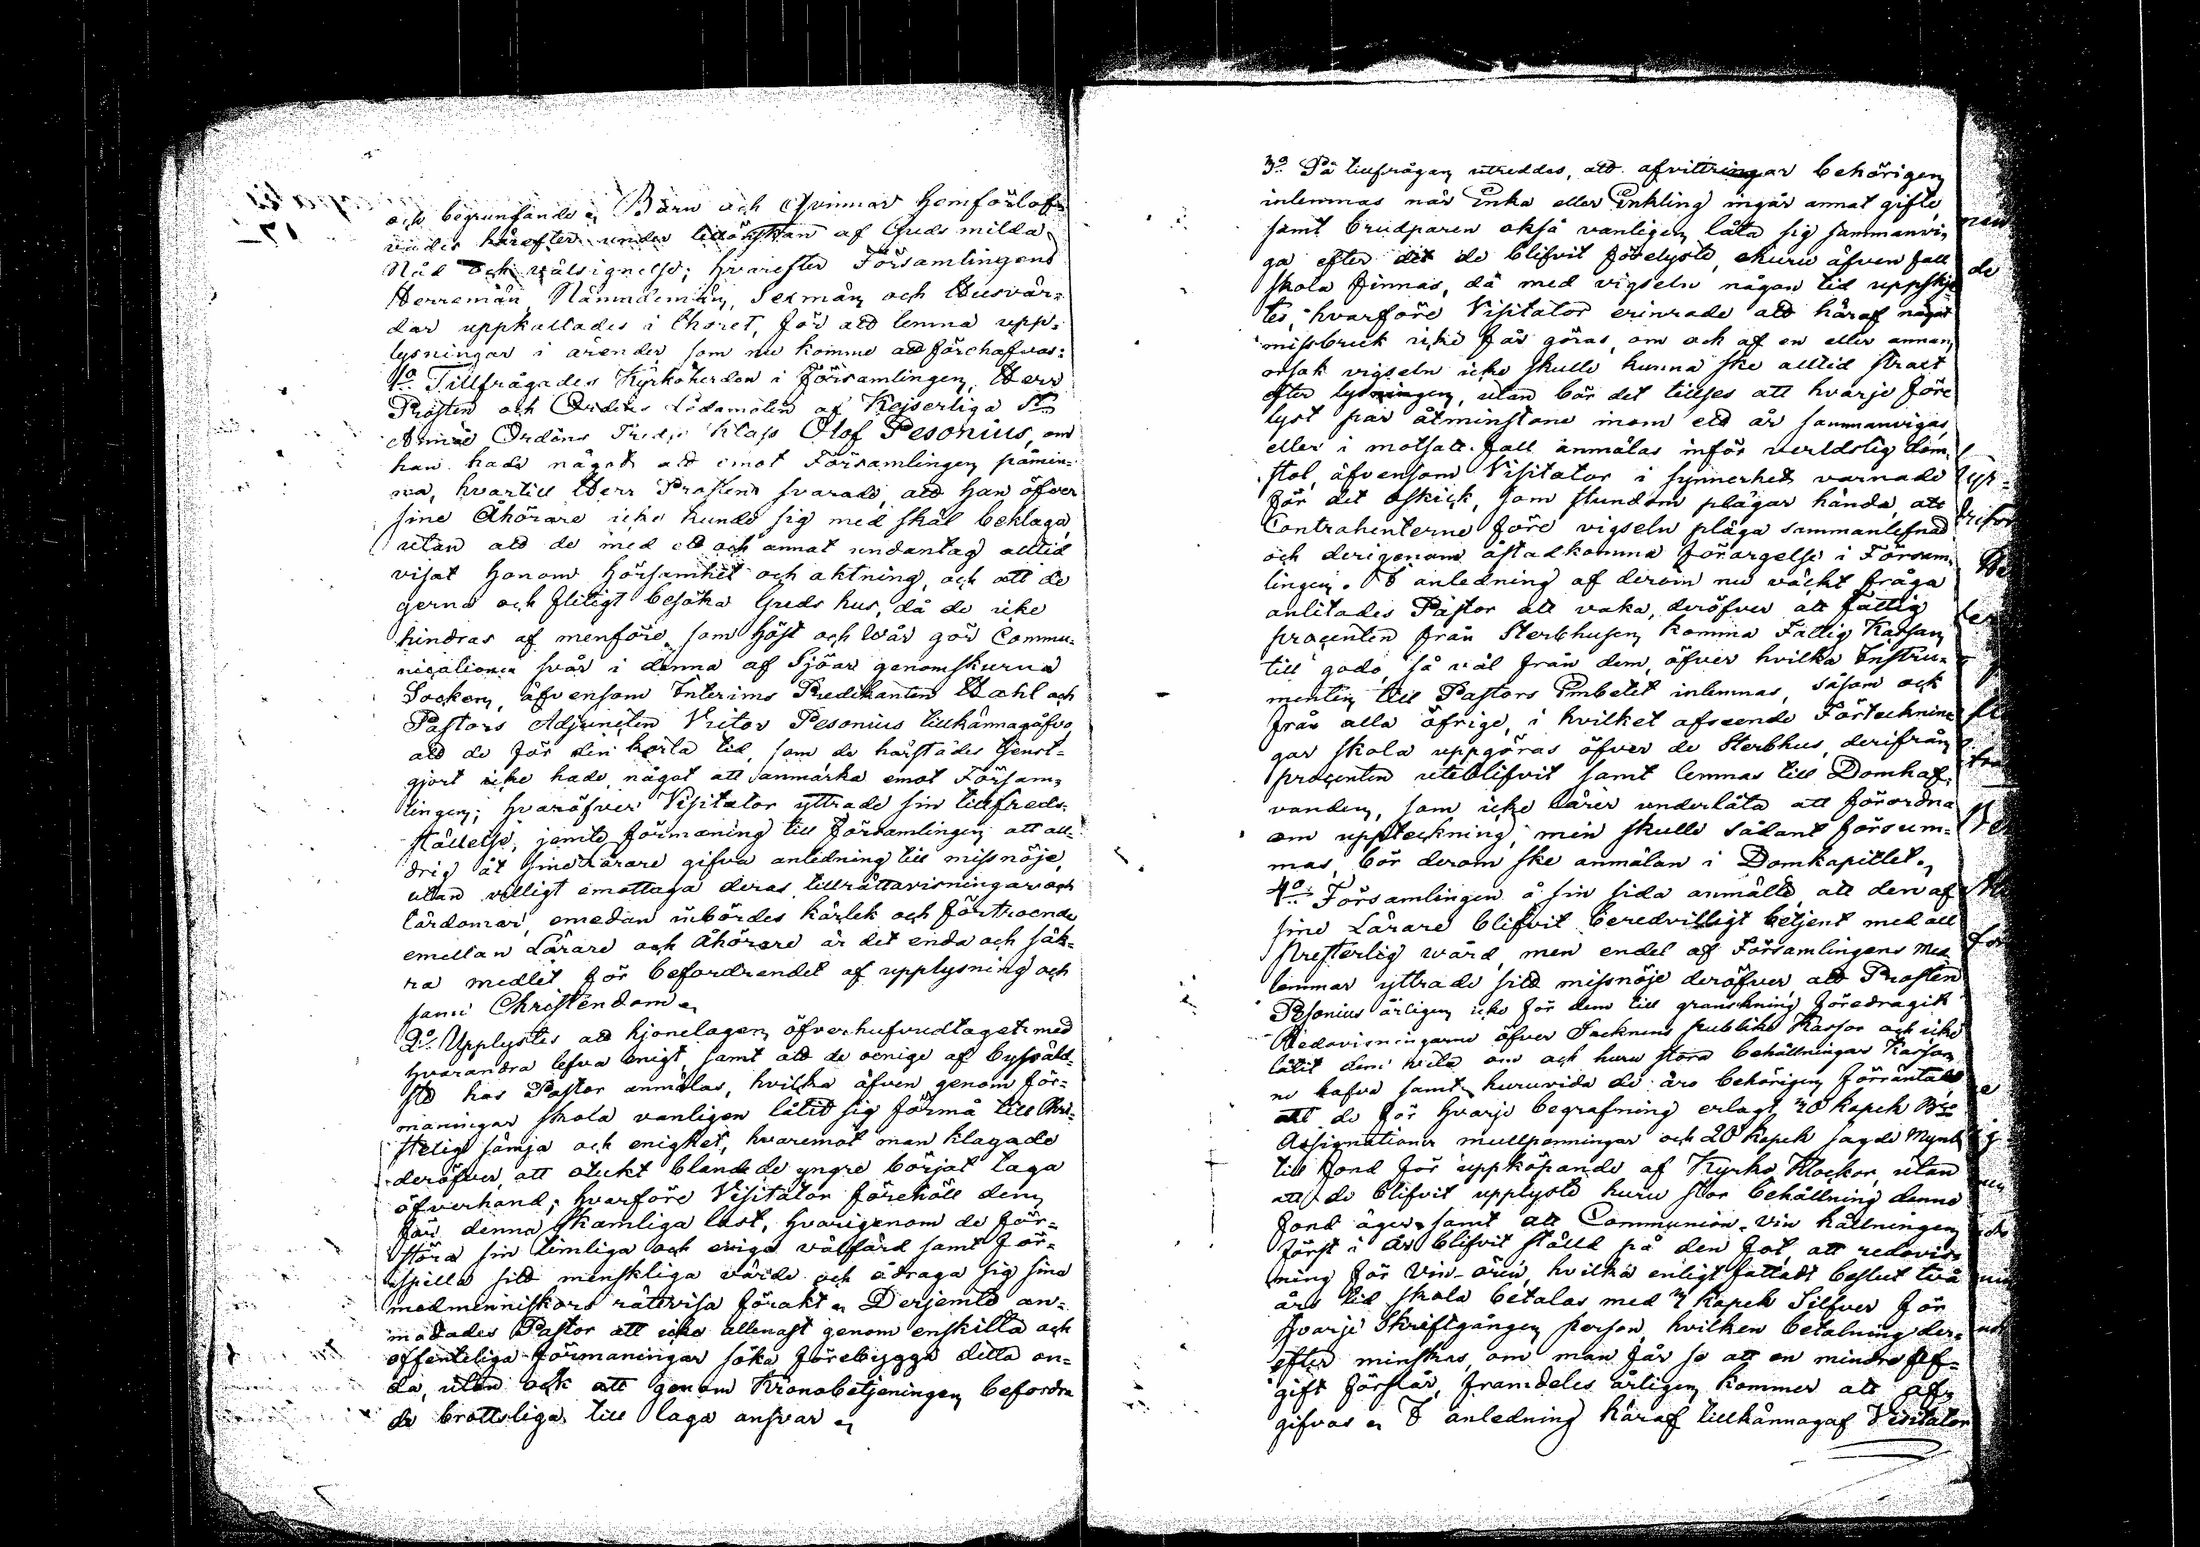 och begrunfande. Barn och Qvinnor hemförlof-
vades härefter under tillönskan af Guds milda
Nåd och välsignelse; hvarefter Församlingens
Herremän, Nämndemän, Sexmän och Husvär-
dar uppkallades i Choret, för att lemna upp-
lysningar i ärender, som nu komme att förehafvas:
1o Tillfrågades Kyrkoherden i Församlingen, Herr
Prosten och Ordens Ledamoten af Kejserliga St
Annæ Ordens Tredje Klass Olof Pesonius, om
han hade något att emot Församlingen påmin-
na, hvartill Herr Prosten svarade, att han öfver
sine Åhörare icke kunde sig med skäl beklaga,
utan att de med ett och annat undantag alltid
visat honom hörsamhet och aktning, och att de
gerna och flitigt besöka Guds hus, då de icke
hindras af menföre, som höst och Wår gör Commu-
nicationen svår i denna af Sjöar genomskurna
Socken, äfvensom Interims Predikanten Wahl och
Pastors Adjuncten Victor Pesonius tillkännagåfvo
att de för den korta tid, som de härstädes tjenst-
gjort icke hade något att anmärka emot Försam-
lingen; hvaröfver Visitator yttrade sin tillfreds-
ställelse, jemte förmaning till Församlingen att al-
drig åt sine Lärare gifva anledning till missnöje,
utan villigt emottaga deras tillrättavisningar och
lärdomar, emedan inbördes kärlek och förtroende
emellan Lärare och Åhörare är det enda och säk-
ra medlet för befordrandet af upplysning och
sann Christendom.
2o Upplystes att hjonelagen öfverhufvudtaget med
hvarandra lefva enigt, samt att de oenige af byssåld-
ste hos Pastor anmälas, hvilka äfven genom för-
maningar skola vanligen låtit sig förmå till Chri-
stelig sämja och enighet, hvaremot man klagade
deröfver, att otukt bland de yngre börjat taga
öfverhand; hvarföre Visitator föreholl dem
för denna skamliga last, hvarigenom de för-
störa sin timliga och eviga välfärd samt för-
spilla sitt menskliga värde och ådraga sig sina
medmenniskors rättvisa förakt. Derjemte an-
modades Pastor att icke allenast genom enskilta och
offenteliga förmaningar söka förebygga detta on-
da, utan ock att genom Kronobetjeningen befordra
de brottsliga till laga ansvar.
3o På tillfrågan utreddes, att afvittringar behörigen
inlemnas när Enka eller Enkling ingår annat gifte
samt brudparen också vanligen låta sig sammanvi-
ga efter det de blifvit förelyste, ehuru äfven fall
skola finnas, då med vigseln någon tid uppskju-
tes, hvarföre Visitator erinrade att häraf något
missbruk icke får göras, om och af en eller annan
orsak vigseln icke skulle kunna ske alltid straxt
efter lysningen, utan bör det tillses att hvarje före
lyst par åtminstone inom ett år sammanvigas,
eller i motsatt fall anmälas inför verldslig dom-
stol, äfvensom Visitator i synnerhet varnade
för det oskick, som stundom plägar hända, att
Contrahenterne före vigseln pläga sammanlefnad
och derigenom åstadkomma förargelse i Försam-
lingen. I anledning af derom nu väckt fråga
anlitades Pastor att vaka, deröfver att fattig
procenten från Sterbhusen komma Fattig Kassan
till godo, så väl från dem, öfver hvilka Instru-
menten till Pastors Embetet inlemnas, såsom ock
från alla öfrige, i hvilket afseende Förtecknin-
gar skola uppgöras öfver de Sterbhus, derifrån
procenten uteblifvit samt lemnas till Domhaf-
vanden, som icke lärer underlåta att förordna
om uppteckning, men skulle sådant försum-
mas, bör derom ske anmälan i Domkapitlet.
4o Församlingen å sin sida anmälte, att den af
sine Lärare blifvit beredvilligt betjent med all
Presterlig wård, men endel af Församlingens Med
lemmar yttrade sitt missnöje deröfver, att Prosten
Pesonius årligen icke för dem till granskning föredragit
Redovisningarne öfver Socknens publike Kassor och icke
låtit dem veta om och huru stora behållningar Kassor
ne hafva samt huruvida de äro behörigen förräntade
att de för hvarje begrafning erlagt 20 kopek Bco
Assignationer mullpenningar och 20 kopek sagde Mynt
till fond för uppköpande af Kyrko Klockor, utan
att de blifvit upplyste huru stor behållning denne
fond äger, samt att Communion-vin hållningen
först i år blifvit ställd på den fot, att redovis-
ning för Vin-ören, hvilka enligt fattadt beslut två
års tid skola betalas med kopek Silfver för
hvarje Skriftgången person, hvilken betalning der-
efter minskas, om man får se att en mindre af-
gift förslår, framdeles årligen kommer att af-
gifvas. I anledning häraf tillkännagaf Visitator